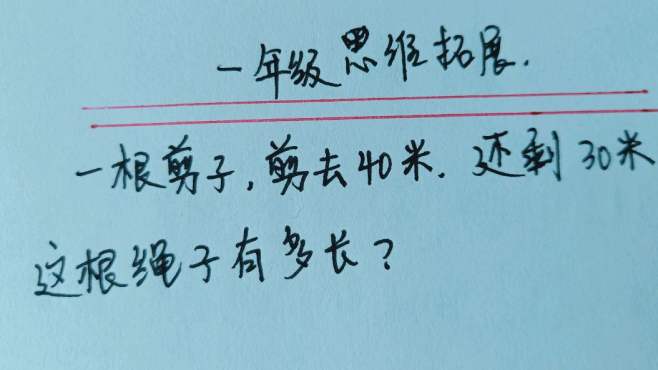 一年级思维拓展.
一根剪子,剪去40米.还剩30米
这根绳子有多长?